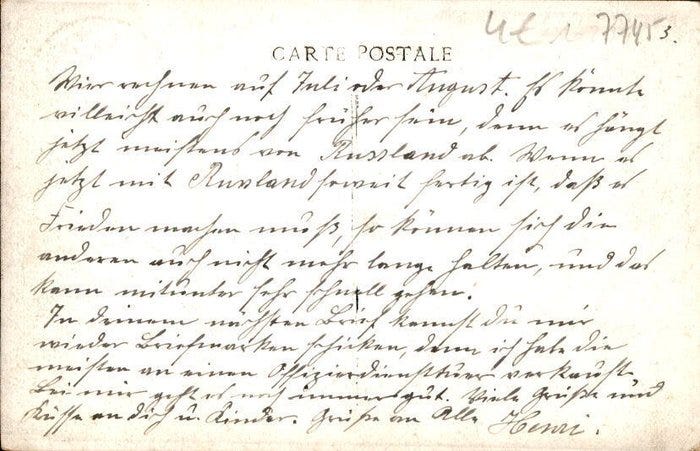 4€ 77453.
CARTE POSTALE
Wier rechnen auf Juli oder August. Es könnte
villeicht auch noch früher sein, denn es hängt
jetzt meistens von Russland ab. Wenn es
jetzt mit Russland soweit fertig ist, daß es
Frieden machen muß, so können sich die
anderen auch nicht mehr lange halten, und das
kann mitunter sehr schnell gehen.
In deinem nächsten Brief kannst du mir
wieder Briefmarken schicken, denn ich habe die
meisten an einen Offizierdiensttuer verkauft.
Bei mir geht es noch immer gut. Viele Grüße und
Küsse an dich u. Kinder. Grüße an Alle Henri.